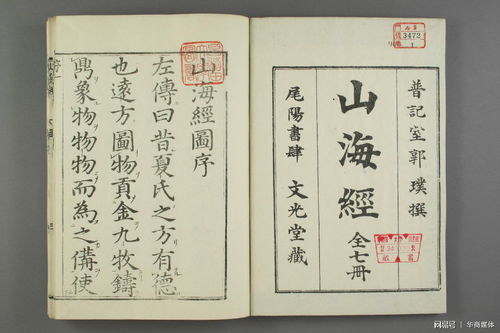 普記室郭璞撰
山海經
全七冊
尾陽書肆 文光堂藏
3472
1
山海經圖序
左傳曰昔夏氏之方有德
也遠方圖物貢金九牧鑄
鼎象物物物而為之備使
序
网易号 / 华商媒体